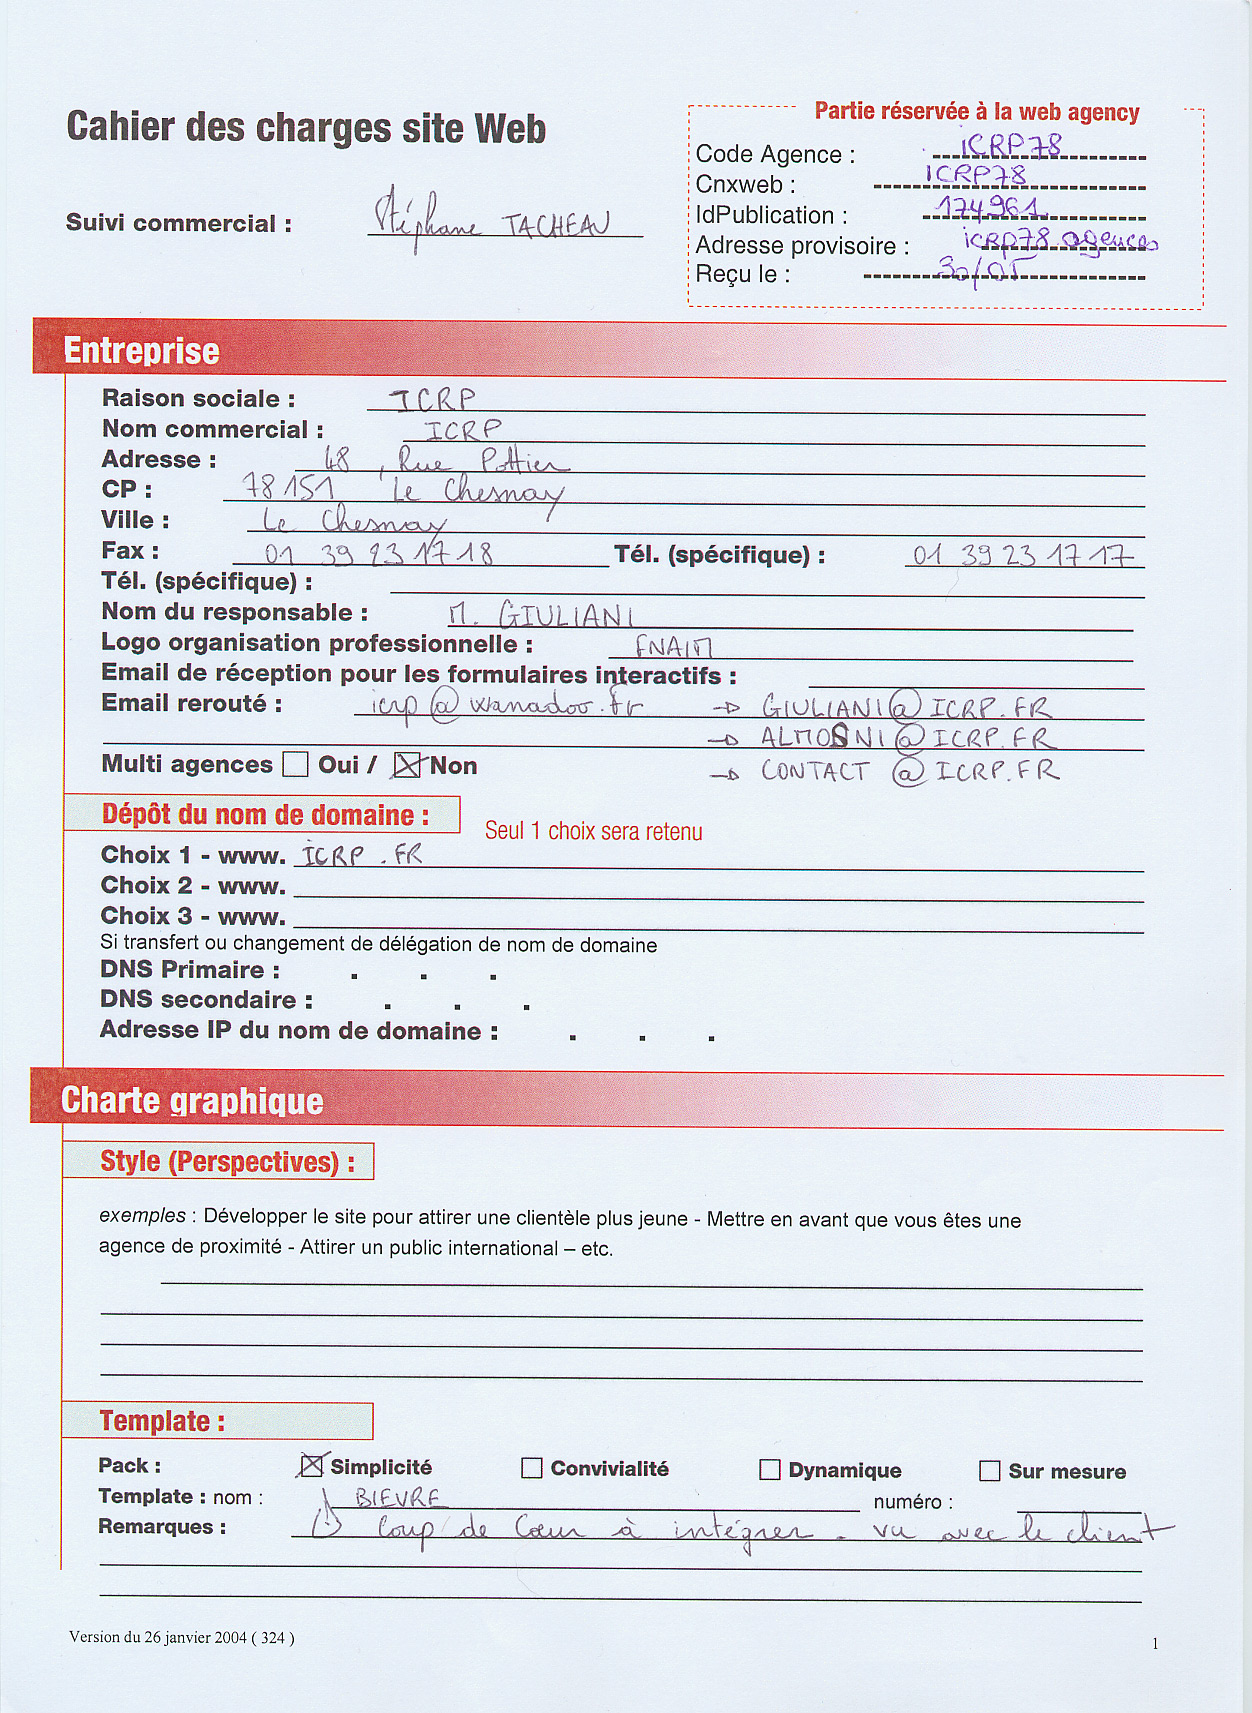 Cahier des charges site Web
Suivi commercial : Stéphane TACHEAU
Partie réservée à la web agency
Code Agence : iCRP78
Cnxweb : ICRP78
IdPublication : 174961
Adresse provisoire : icrp78.agences
Reçu le : 30/05
Entreprise
Raison sociale : ICRP
Nom commercial : ICRP
Adresse : 48, Rue Pottier
CP : 78151 Le Chesnay
Ville : Le Chesnay
Fax : 01 39 23 17 18 Tél. (spécifique) : 01 39 23 17 17
Tél. (spécifique) :
Nom du responsable : M. GIULIANI
Logo organisation professionnelle : FNAIM
Email de réception pour les formulaires interactifs :
Email rerouté : icrp@wanadoo.fr → GIULIANI@ICRP.FR
→ ALMOSNI@ICRP.FR
Multi agences Oui / Non → CONTACT @ICRP.FR
Dépôt du nom de domaine : Seul 1 choix sera retenu
Choix 1 - www. ICRP.FR
Choix 2 - www.
Choix 3 - www.
Si transfert ou changement de délégation de nom de domaine
DNS Primaire : . . .
DNS secondaire : . . .
Adresse IP du nom de domaine : . . .
Charte graphique
Style (Perspectives) :
exemples : Développer le site pour attirer une clientèle plus jeune - Mettre en avant que vous êtes une
agence de proximité - Attirer un public international – etc.
Template :
Pack : Simplicité Convivialité Dynamique Sur mesure
Template : nom : BIEVRE numéro :
Remarques : Coup de Cœur à intégrer - vu avec le client
Version du 26 janvier 2004 ( 324 )
1